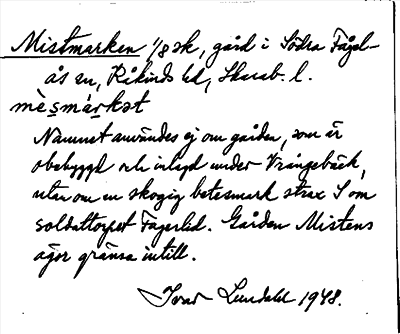 Mistmarken 1/8 sk, gård i Södra Fågel-
ås sn, Råkinds hd, Skarab. l.
mèsmárkət
Namnet användes ej om gården, som är
obebyggd och inlagd under Vrångebäck,
utan om en skogig betesmark strax S om
soldattorpet Fagerlid. Gården Mistens
ägor gränsa intill.
Ivar Lundahl 1948.